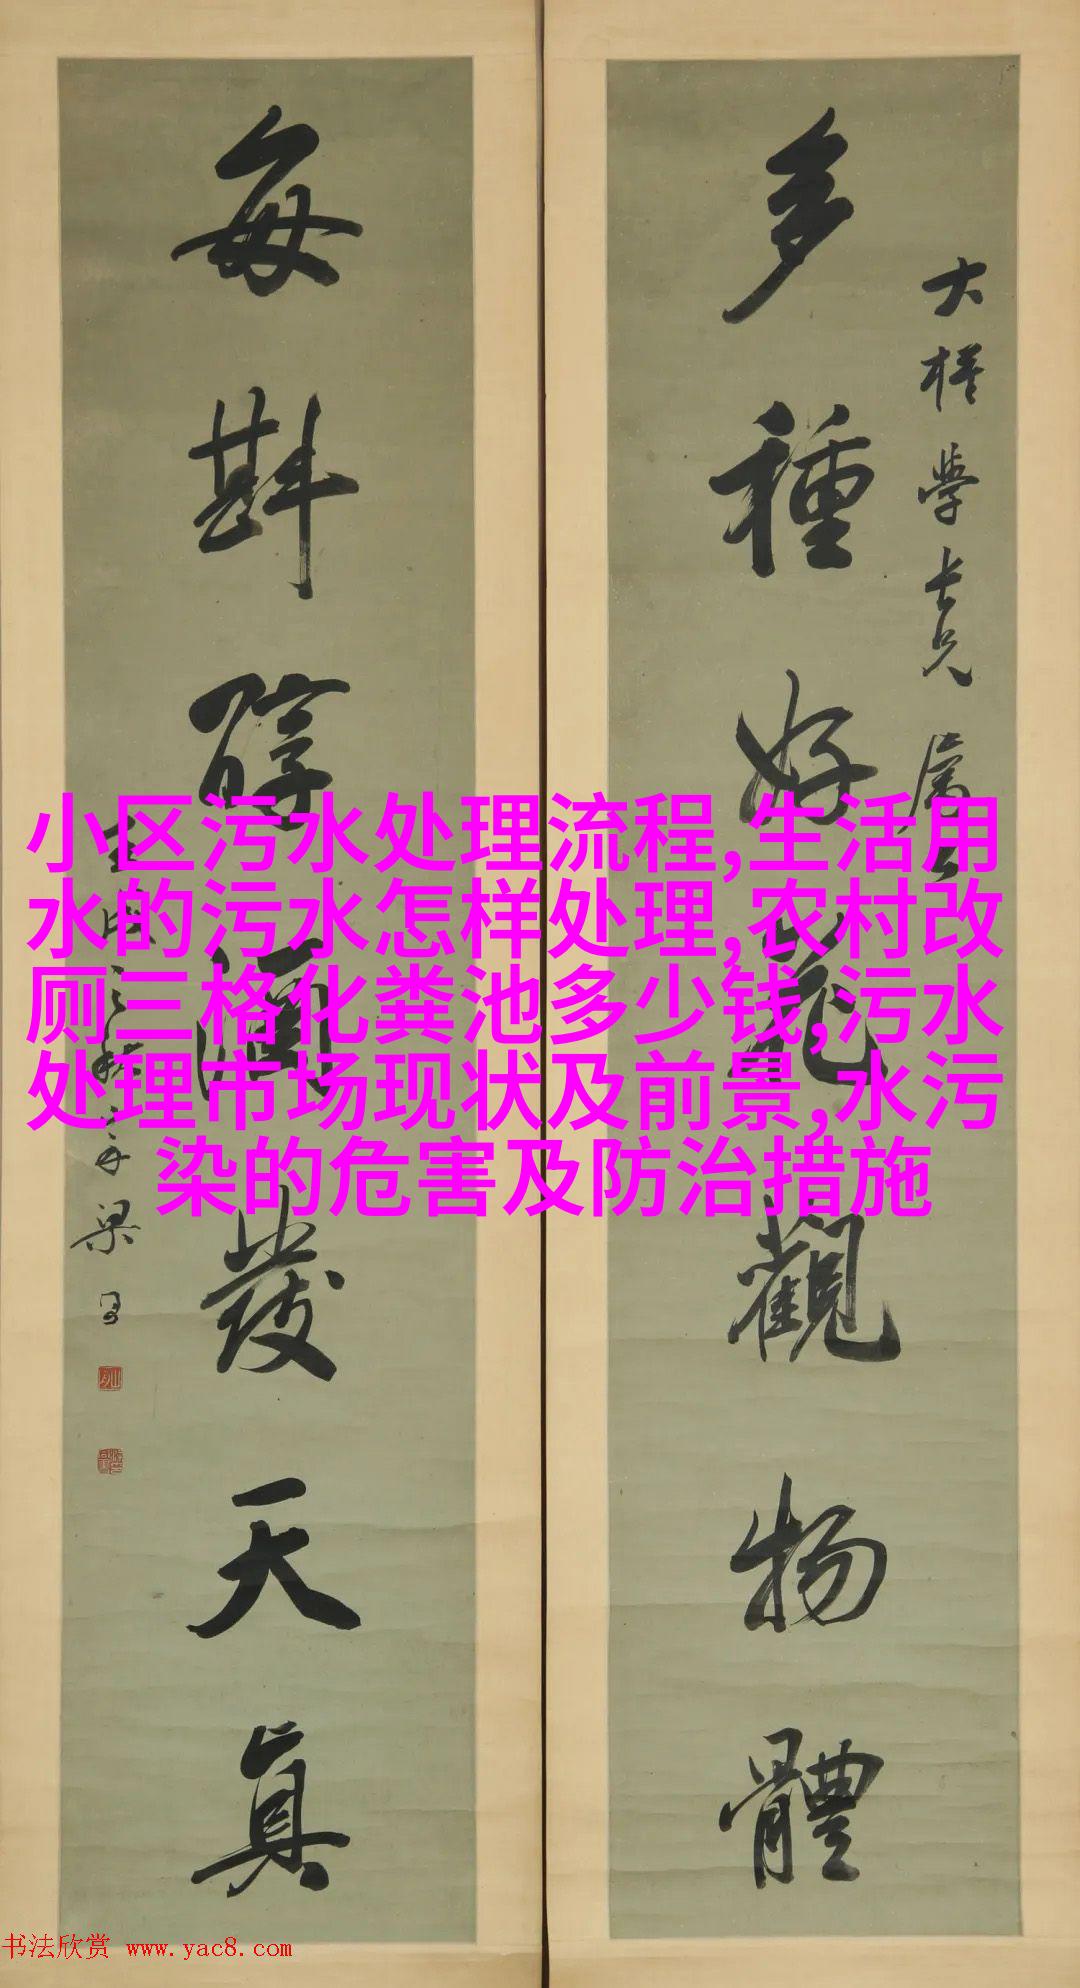 多種好花觀物體
大楳學長兄屬
每斟醇酒發天真
小区污水处理流程,生活用
水的污水怎样处理,农村改
厕三格化粪池多少钱,污水
处理市场现状及前景,水污
染的危害及防治措施
书法欣赏 www.yac8.com